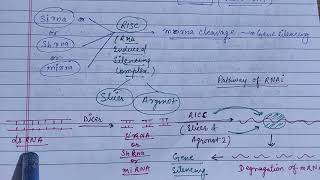 SiRNA
or
ShRNA
or
miRNA
RISC
(RNA
Induced
Silencing
Complex)
mRNA cleavage
Gene silencing
Pathway of RNAi
Slicer
Argonot
dsRNA
Dicer
SiRNA
or
ShRNA
or
miRNA
RISC
(Slicer &
Argonot 2)
Gene
Silencing
Degragation of mRNA